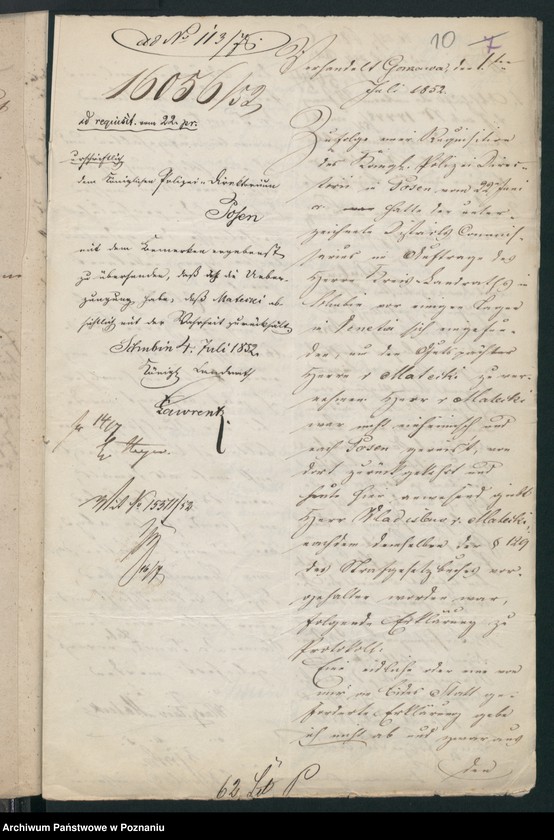 ad No 113/7
10 7
16056/52
ad requisit. vom 22. pr.
urschriftlich
dem Königlichen Polizei-Direktorium
Posen
mit dem Bemerken ergebenst
zu übersenden, daß ich die Ueber-
zeugung habe, daß Malecki ab-
sichtlich mit der Wahrheit zurückhält
Schubin 4. Juli 1852.
Königl. Landrath
Lawrenz
14/7
No 15511/52
Verhandelt Gonsawa, den 1ten
Juli 1852.
Zufolge einer Requisition
des Königl. Polizei-Direc-
torii in Posen vom 22ten Juni
hatte der unter-
zeichnete Distrikts-Commis-
sarius im Auftrage des
Herrn Kreis-Landraths in
Schubin vor einigen Tagen
in Venetia sich eingefun-
den, um den Gutspächter
Herrn v Malecki zu ver-
nehmen. Herr v Malecki
war nicht einheimisch und
nach Posen gereist, von
dort zurückgekehrt und
heute hier anwesend giebt
Herr Vladislaus v. Malecki,
nachdem demselben der § 129
des Strafgesetzbuches vor-
gehalten worden war,
folgende Erklärung zu
Protokoll:
Eine eidliche oder eine von
mir an Eides Statt ge-
forderte Erklärung gebe
ich nicht ab und zwar aus
den
62 Lit P
Archiwum Państwowe w Poznaniu